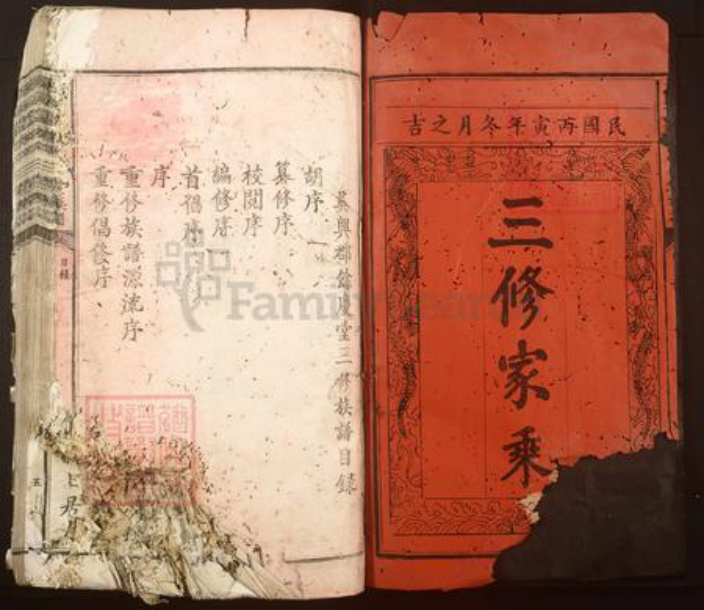 民國丙寅年冬月之吉
三修家乘
吳興郡餘慶堂三修族譜目錄
胡序
纂修序
校閱序
編修序
首倡序
序
重修族譜源流序
重修倡後序
目錄
五
FamilySearch